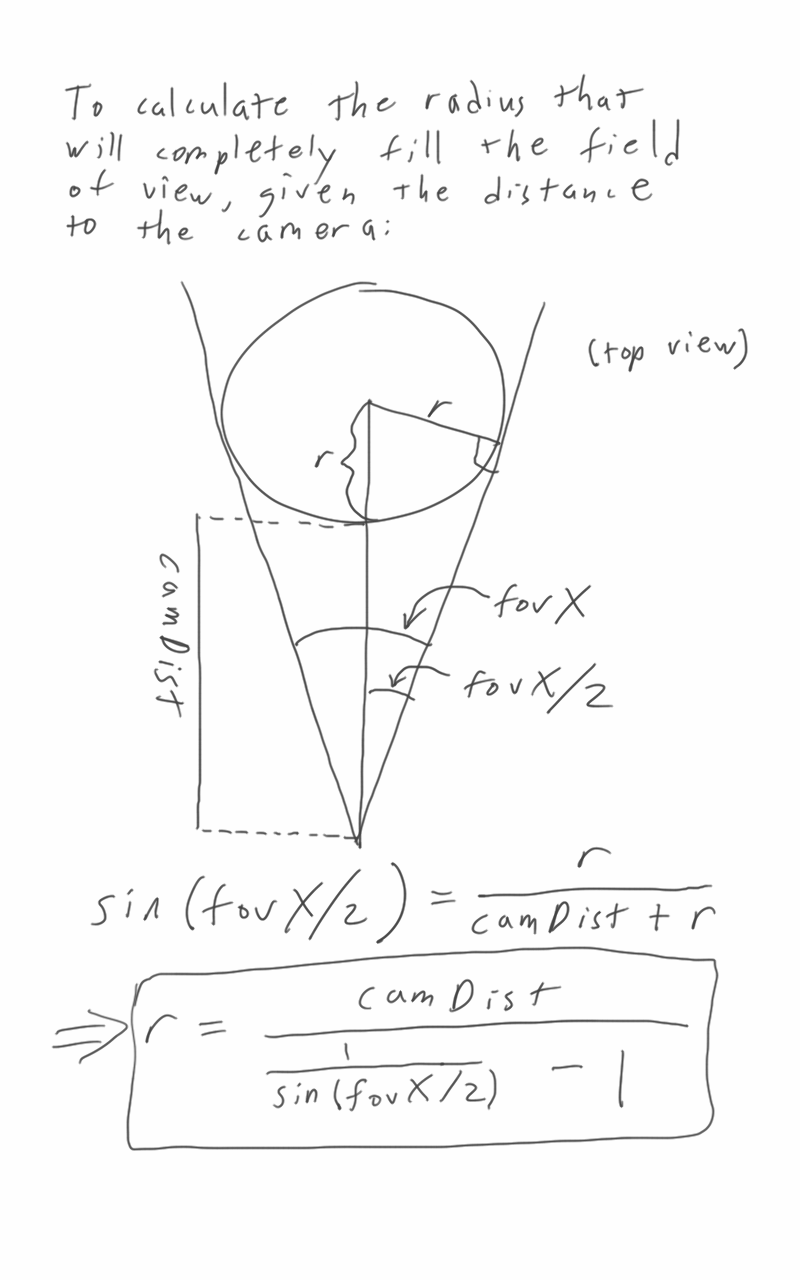 To calculate the radius that
will completely fill the field
of view, given the distance
to the camera:
(top view)
r
r
camDist
fovX
fovX/2
sin(fovX/2) = r / (camDist + r)
⇒ r = camDist / (1 / sin(fovX/2) - 1)